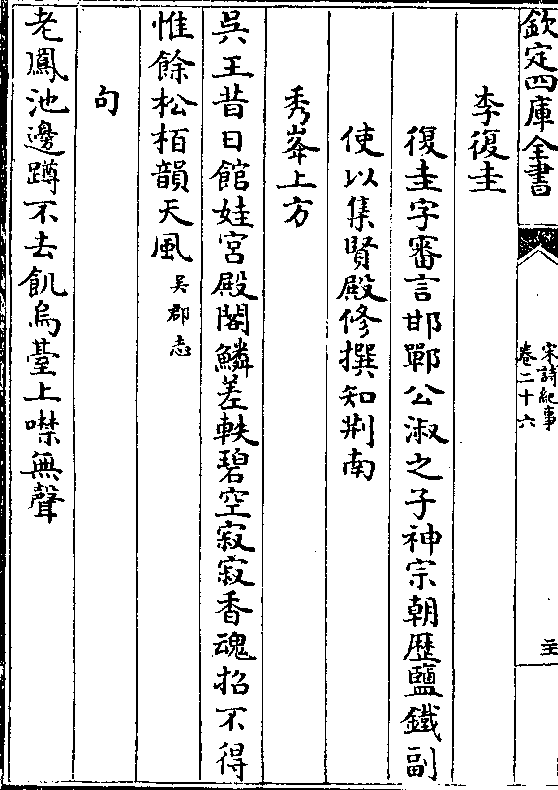 欽定四庫全書
宋詩紀事
卷二十六
李復圭
復圭字審言邯鄲公淑之子神宗朝歷鹽鐵副
使以集賢殿修撰知荆南
秀峯上方
吳王昔日館娃宮殿閣鱗差軼碧空寂寂香魂招不得
惟餘松栢韻天風吳郡志
句
老鳳池邊蹲不去飢烏臺上噤無聲